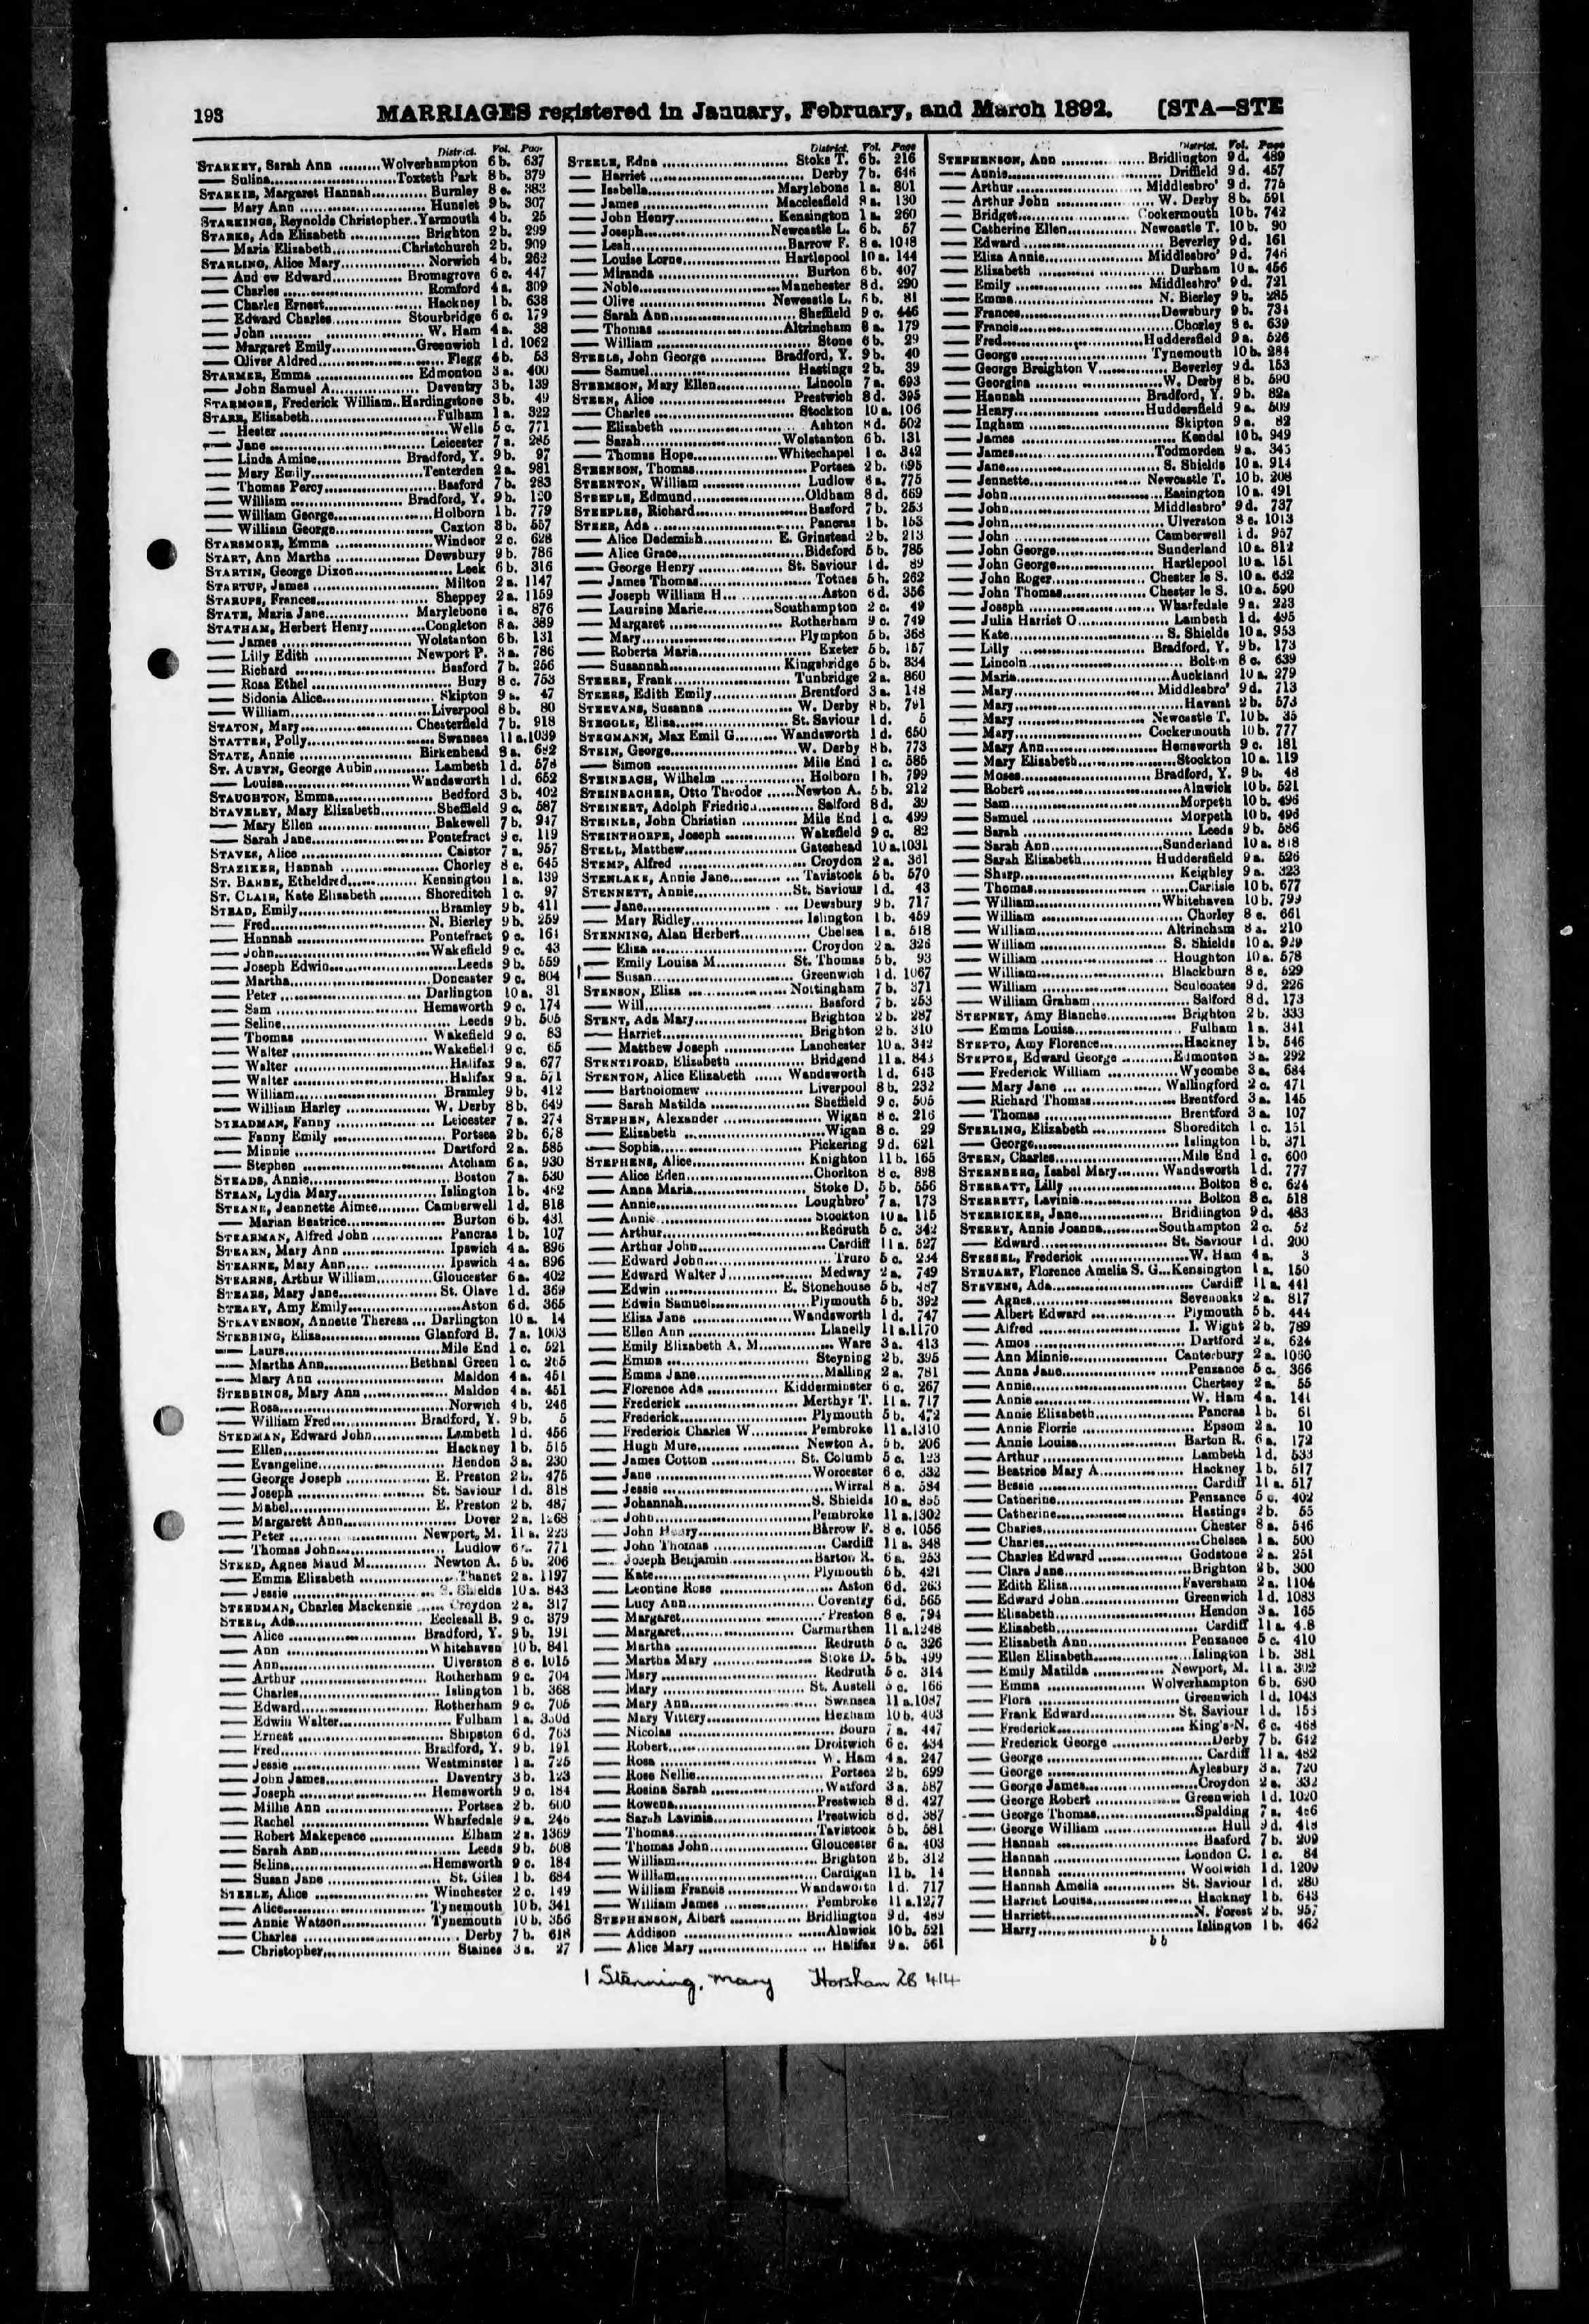 193
MARRIAGES registered in January, February, and March 1892.
[STA—STE
District. Vol. Page
STARKEY, Sarah Ann .........Wolverhampton 6 b. 637
— Sulina...Toxteth Park 8 b. 379
STARKIE, Margaret Hannah............Burnley 8 e. 383
— Mary Ann ...Hunslet 9 b. 307
STARKINGS, Reynolds Christopher..Yarmouth 4 b. 25
STARKS, Ada Elizabeth ..............Brighton 2 b. 299
— Maria Elizabeth...............Christchurch 2 b. 909
STARLING, Alice Mary..................Norwich 4 b. 262
— And ew Edward..............Bromsgrove 6 c. 447
— Charles ...Romford 4 a. 309
— Charles Ernest...Hackney 1 b. 638
— Edward Charles.............. Stourbridge 6 c. 179
— John ...W. Ham 4 a. 38
— Margaret Emily..................Greenwich 1 d. 1062
— Oliver Aldred...Flegg 4 b. 53
STARMER, Emma ...Edmonton 3 a. 400
— John Samuel A...Daventry 3 b. 139
STARMORE, Frederick William..Hardingstone 3 b. 49
STARR, Elizabeth...Fulham 1 a. 322
— Hester ...Wells 5 c. 771
— Jane ...Leicester 7 a. 285
— Linda Amine...Bradford, Y. 9 b. 97
— Mary Emily...Tenterden 2 a. 981
— Thomas Percy...Basford 7 b. 283
— William ...Bradford, Y. 9 b. 120
— William George...Holborn 1 b. 779
— William George...Caxton 3 b. 557
STARSMORE, Emma ...Windsor 2 c. 628
START, Ann Martha ...Dewsbury 9 b. 786
STARTIN, George Dixon...Leek 6 b. 316
STARTUP, James ...Milton 2 a. 1147
STARUPS, Frances...Sheppey 2 a. 1159
STATE, Maria Jane...Marylebone 1 a. 876
STATHAM, Herbert Henry...Congleton 8 a. 389
— James ...Wolstanton 6 b. 131
— Lilly Edith ...Newport P. 3 a. 786
— Richard ...Basford 7 b. 256
— Rosa Ethel ...Bury 8 c. 753
— Sidonia Alice...Skipton 9 a. 47
— William...Liverpool 8 b. 80
STATON, Mary...Chesterfield 7 b. 918
STATTEN, Polly...Swansea 11 a. 1039
STATE, Annie ...Birkenhead 8 a. 682
ST. AUBYN, George Aubin...Lambeth 1 d. 578
— Louisa...Wandsworth 1 d. 652
STAUGHTON, Emma...Bedford 3 b. 402
STAVELEY, Mary Elizabeth...Sheffield 9 c. 587
— Mary Ellen ...Bakewell 7 b. 947
— Sarah Jane...Pontefract 9 c. 119
STAVES, Alice ...Caistor 7 a. 957
STAZIKER, Hannah ...Chorley 8 e. 645
ST. BARBE, Etheldred...Kensington 1 a. 139
ST. CLAIR, Kate Elizabeth ...Shoreditch 1 c. 97
STEAD, Emily...Bramley 9 b. 411
— Fred...N. Bierley 9 b. 259
— Hannah ...Pontefract 9 c. 161
— John...Wakefield 9 c. 43
— Joseph Edwin...Leeds 9 b. 559
— Martha...Doncaster 9 c. 804
— Peter ...Darlington 10 a. 31
— Sam ...Hemsworth 9 c. 174
— Seline...Leeds 9 b. 505
— Thomas ...Wakefield 9 c. 83
— Walter ...Wakefield 9 c. 65
— Walter ...Halifax 9 a. 677
— Walter ...Halifax 9 a. 571
— William...Bramley 9 b. 412
— William Harley ...W. Derby 8 b. 649
STEADMAN, Fanny ...Leicester 7 a. 274
— Fanny Emily ...Portsea 2 b. 678
— Minnie ...Dartford 2 a. 585
— Stephen ...Atcham 6 a. 930
STEADS, Annie...Boston 7 a. 530
STEAN, Lydia Mary...Islington 1 b. 462
STEANE, Jeannette Aimee...Camberwell 1 d. 818
— Marian Beatrice...Burton 6 b. 431
STEARMAN, Alfred John ...Pancras 1 b. 107
STEARN, Mary Ann ...Ipswich 4 a. 896
STEARNE, Mary Ann...Ipswich 4 a. 896
STEARNS, Arthur William...Gloucester 6 a. 402
STEARS, Mary Jane...St. Olave 1 d. 369
STEARY, Amy Emily...Aston 6 d. 365
STEAVENSON, Annette Theresa ...Darlington 10 a. 14
STEBBING, Eliza...Glanford B. 7 a. 1003
— Laura...Mile End 1 c. 521
— Martha Ann...Bethnal Green 1 c. 265
— Mary Ann ...Maldon 4 a. 451
STEBBINGS, Mary Ann ...Maldon 4 a. 451
— Rosa...Norwich 4 b. 246
— William Fred...Bradford, Y. 9 b. 5
STEDMAN, Edward John...Lambeth 1 d. 456
— Ellen...Hackney 1 b. 515
— Evangeline...Hendon 3 a. 230
— George Joseph ...E. Preston 2 b. 475
— Joseph ...St. Saviour 1 d. 318
— Mabel...E. Preston 2 b. 487
— Margarett Ann...Dover 2 a. 1268
— Peter ...Newport, M. 11 a. 223
— Thomas John...Ludlow 6 a. 771
STEED, Agnes Maud M...Newton A. 5 b. 206
— Emma Elizabeth ...Thanet 2 a. 1197
— Jessie ...S. Shields 10 a. 843
STEEDMAN, Charles Mackenzie ...Croydon 2 a. 317
STEEL, Ada...Ecclesall B. 9 c. 379
— Alice ...Bradford, Y. 9 b. 191
— Ann ...Whitehaven 10 b. 841
— Ann...Ulverston 8 e. 1015
— Arthur ...Rotherham 9 c. 704
— Charles...Islington 1 b. 368
— Edward...Rotherham 9 c. 705
— Edwin Walter...Fulham 1 a.
— Ernest ...Shipston 6 d. 763
— Fred...Bradford, Y. 9 b. 191
— Jessie ...Westminster 1 a. 725
— John James...Daventry 3 b. 123
— Joseph ...Hemsworth 9 c. 184
— Millie Ann ...Portsea 2 b. 600
— Rachel ...Wharfedale 9 a. 246
— Robert Makepeace ...Elham 2 a. 1369
— Sarah Ann...Leeds 9 b. 508
— Selina...Hemsworth 9 c. 184
— Susan Jane ...St. Giles 1 b. 684
STEELE, Alice ...Winchester 2 c. 149
— Alice...Tynemouth 10 b. 341
— Annie Watson...Tynemouth 10 b. 356
— Charles ...Derby 7 b. 618
— Christopher...Staines 3 a. 27
District. Vol. Page
STEELE, Edna ...Stoke T. 6 b. 216
— Harriet ...Derby 7 b. 646
— Isabella...Marylebone 1 a. 801
— James ...Macclesfield 8 a. 130
— John Henry...Kensington 1 a. 260
— Joseph...Newcastle L. 6 b. 57
— Leah...Barrow F. 8 e. 1048
— Louise Lorne...Hartlepool 10 a. 144
— Miranda ...Burton 6 b. 407
— Noble...Manchester 8 d. 290
— Olive ...Newcastle L. 6 b. 81
— Sarah Ann...Sheffield 9 c. 446
— Thomas ...Altrincham 8 a. 179
— William ...Stone 6 b. 29
STEELS, John George ...Bradford, Y. 9 b. 40
— Samuel...Hastings 2 b. 39
STEEMSON, Mary Ellen...Lincoln 7 a. 693
STEEN, Alice ...Prestwich 8 d. 395
— Charles ...Stockton 10 a. 106
— Elizabeth ...Ashton 8 d. 502
— Sarah...Wolstanton 6 b. 131
— Thomas Hope...Whitechapel 1 c. 342
STEENSON, Thomas...Portsea 2 b. 695
STEENTON, William ...Ludlow 6 a. 775
STEEPLE, Edmund...Oldham 8 d. 669
STEEPLES, Richard...Basford 7 b. 253
STEER, Ada ...Pancras 1 b. 153
— Alice Dedemiah...E. Grinstead 2 b. 213
— Alice Grace...Bideford 5 b. 785
— George Henry ...St. Saviour 1 d. 89
— James Thomas...Totnes 5 b. 262
— Joseph William H...Aston 6 d. 356
— Laursine Marie...Southampton 2 c. 49
— Margaret ...Rotherham 9 c. 749
— Mary...Plympton 5 b. 368
— Roberta Maria...Exeter 5 b. 157
— Susannah...Kingsbridge 5 b. 334
STEERE, Frank...Tunbridge 2 a. 860
STEERS, Edith Emily...Brentford 3 a. 148
STEEVANS, Susanna ...W. Derby 8 b. 791
STEGGLE, Eliza...St. Saviour 1 d. 5
STEGMANN, Max Emil G...Wandsworth 1 d. 650
STEIN, George...W. Derby 8 b. 773
— Simon ...Mile End 1 c. 585
STEINBACH, Wilhelm ...Holborn 1 b. 799
STEINBACHER, Otto Theodor ...Newton A. 5 b. 212
STEINERT, Adolph Friedrich...Salford 8 d. 39
STEINLE, John Christian ...Mile End 1 c. 499
STEINTHORPE, Joseph ...Wakefield 9 c. 82
STELL, Matthew...Gateshead 10 a. 1031
STEMP, Alfred ...Croydon 2 a. 361
STENLAKE, Annie Jane...Tavistock 5 b. 570
STENNETT, Annie...St. Saviour 1 d. 43
— Jane...Dewsbury 9 b. 717
— Mary Ridley...Islington 1 b. 459
STENNING, Alan Herbert...Chelsea 1 a. 518
— Eliza ...Croydon 2 a. 326
— Emily Louisa M...St. Thomas 5 b. 93
— Susan...Greenwich 1 d. 1067
STENSON, Eliza ...Nottingham 7 b. 371
— Will...Basford 7 b. 253
STENT, Ada Mary...Brighton 2 b. 287
— Harriet...Brighton 2 b. 310
— Matthew Joseph ...Lanchester 10 a. 342
STENTIFORD, Elizabeth ...Bridgend 11 a. 843
STENTON, Alice Elizabeth ...Wandsworth 1 d. 643
— Bartholomew ...Liverpool 8 b. 232
— Sarah Matilda ...Sheffield 9 c. 505
STEPHEN, Alexander ...Wigan 8 c. 216
— Elizabeth ...Wigan 8 c. 29
— Sophia...Pickering 9 d. 621
STEPHENS, Alice...Knighton 11 b. 165
— Alice Eden...Chorlton 8 c. 898
— Anna Maria...Stoke D. 5 b. 556
— Annie...Loughbro' 7 a. 173
— Annie...Stockton 10 a. 115
— Arthur...Redruth 5 c. 342
— Arthur John...Cardiff 11 a. 527
— Edward John...Truro 5 c. 234
— Edward Walter J...Medway 2 a. 749
— Edwin ...E. Stonehouse 5 b. 487
— Edwin Samuel...Plymouth 5 b. 392
— Eliza Jane ...Wandsworth 1 d. 747
— Ellen Ann ...Llanelly 11 a. 1170
— Emily Elizabeth A. M...Ware 3 a. 413
— Emma ...Steyning 2 b. 395
— Emma Jane...Malling 2 a. 781
— Florence Ada ...Kidderminster 6 c. 267
— Frederick ...Merthyr T. 11 a. 717
— Frederick...Plymouth 5 b. 472
— Frederick Charles W...Pembroke 11 a. 1310
— Hugh Mure...Newton A. 5 b. 206
— James Cotton ...St. Columb 5 c. 123
— Jane ...Worcester 6 c. 332
— Jessie ...Wirral 8 a. 584
— Johannah...S. Shields 10 a. 855
— John...Pembroke 11 a. 1302
— John Henry...Barrow F. 8 e. 1056
— John Thomas ...Cardiff 11 a. 348
— Joseph Benjamin...Barton R. 6 a. 253
— Kate...Plymouth 5 b. 421
— Leontine Rose ...Aston 6 d. 263
— Lucy Ann...Coventry 6 d. 565
— Margaret...Preston 8 e. 794
— Margaret...Carmarthen 11 a. 1248
— Martha ...Redruth 5 c. 326
— Martha Mary ...Stoke D. 5 b. 499
— Mary ...Redruth 5 c. 314
— Mary ...St. Austell 5 c. 166
— Mary Ann...Swansea 11 a. 1087
— Mary Vittery...Hexham 10 b. 403
— Nicolas ...Bourn 7 a. 447
— Robert...Droitwich 6 c. 434
— Rosa ...W. Ham 4 a. 247
— Rose Nellie...Portsea 2 b. 699
— Rosina Sarah ...Watford 3 a. 587
— Rowena...Prestwich 8 d. 427
— Sarah Lavinia...Prestwich 8 d. 387
— Thomas...Tavistock 5 b. 581
— Thomas John...Gloucester 6 a. 403
— William...Brighton 2 b. 312
— William...Cardigan 11 b. 14
— William Francis ...Wandsworth 1 d. 717
— William James ...Pembroke 11 a. 1277
STEPHENSON, Albert ...Bridlington 9 d. 489
— Addison ...Alnwick 10 b. 521
— Alice Mary ...Halifax 9 a. 561
District. Vol. Page
STEPHENSON, Ann ...Bridlington 9 d. 489
— Annie...Driffield 9 d. 457
— Arthur ...Middlesbro' 9 d. 775
— Arthur John ...W. Derby 8 b. 591
— Bridget...Cockermouth 10 b. 742
— Catherine Ellen...Newcastle T. 10 b. 90
— Edward ...Beverley 9 d. 161
— Eliza Annie...Middlesbro' 9 d. 746
— Elizabeth ...Durham 10 a. 456
— Emily ...Middlesbro' 9 d. 721
— Emma...N. Bierley 9 b. 285
— Frances...Dewsbury 9 b. 734
— Francis...Chorley 8 e. 639
— Fred...Huddersfield 9 a. 526
— George ...Tynemouth 10 b. 284
— George Breighton V...Beverley 9 d. 153
— Georgina ...W. Derby 8 b. 590
— Hannah ...Bradford, Y. 9 b. 82a
— Henry...Huddersfield 9 a. 509
— Ingham ...Skipton 9 a. 82
— James ...Kendal 10 b. 949
— James...Todmorden 9 a. 345
— Jane...S. Shields 10 a. 914
— Jennette...Newcastle T. 10 b. 208
— John...Easington 10 a. 491
— John...Middlesbro' 9 d. 737
— John...Ulverston 8 e. 1013
— John ...Camberwell 1 d. 957
— John George...Sunderland 10 a. 812
— John George...Hartlepool 10 a. 151
— John Roger...Chester le S. 10 a. 632
— John Thomas...Chester le S. 10 a. 590
— Joseph ...Wharfedale 9 a. 223
— Julia Harriet O...Lambeth 1 d. 495
— Kate...S. Shields 10 a. 953
— Lilly ...Bradford, Y. 9 b. 173
— Lincoln...Bolton 8 c. 639
— Maria...Auckland 10 a. 279
— Mary...Middlesbro' 9 d. 713
— Mary...Havant 2 b. 573
— Mary ...Newcastle T. 10 b. 35
— Mary...Cockermouth 10 b. 777
— Mary Ann...Hemsworth 9 c. 181
— Mary Elizabeth...Stockton 10 a. 119
— Moses...Bradford, Y. 9 b. 48
— Robert ...Alnwick 10 b. 521
— Sam...Morpeth 10 b. 496
— Samuel ...Morpeth 10 b. 496
— Sarah ...Leeds 9 b. 586
— Sarah Ann...Sunderland 10 a. 818
— Sarah Elizabeth...Huddersfield 9 a. 526
— Sharp...Keighley 9 a. 323
— Thomas...Carlisle 10 b. 677
— William...Whitehaven 10 b. 799
— William ...Chorley 8 e. 661
— William...Altrincham 8 a. 210
— William ...S. Shields 10 a. 929
— William ...Houghton 10 a. 578
— William...Blackburn 8 e. 529
— William ...Sculcoates 9 d. 226
— William Graham...Salford 8 d. 173
STEPNEY, Amy Blanche...Brighton 2 b. 333
— Emma Louisa...Fulham 1 a. 341
STEPTO, Amy Florence...Hackney 1 b. 546
STEPTOE, Edward George ...Edmonton 3 a. 292
— Frederick William ...Wycombe 3 a. 684
— Mary Jane ...Wallingford 2 c. 471
— Richard Thomas...Brentford 3 a. 145
— Thomas ...Brentford 3 a. 107
STERLING, Elizabeth ...Shoreditch 1 c. 151
— George...Islington 1 b. 371
STERN, Charles...Mile End 1 c. 600
STERNBERG, Isabel Mary...Wandsworth 1 d. 777
STERRATT, Lilly ...Bolton 8 c. 624
STERRETT, Lavinia...Bolton 8 c. 518
STERRICKER, Jane...Bridlington 9 d. 483
STERRY, Annie Joanna...Southampton 2 c. 52
— Edward...St. Saviour 1 d. 200
STESSEL, Frederick ...W. Ham 4 a. 3
STEUART, Florence Amelia S. G...Kensington 1 a. 150
STEVENS, Ada...Cardiff 11 a. 441
— Agnes...Sevenoaks 2 a. 817
— Albert Edward ...Plymouth 5 b. 444
— Alfred ...I. Wight 2 b. 789
— Amos ...Dartford 2 a. 624
— Ann Minnie...Canterbury 2 a. 1060
— Anna Jane...Penzance 5 c. 366
— Annie...Chertsey 2 a. 55
— Annie...W. Ham 4 a. 141
— Annie Elizabeth...Pancras 1 b. 61
— Annie Florrie ...Epsom 2 a. 10
— Annie Louisa...Barton R. 6 a. 172
— Arthur ...Lambeth 1 d. 533
— Beatrice Mary A...Hackney 1 b. 517
— Bessie ...Cardiff 11 a. 517
— Catherine...Penzance 5 c. 402
— Catherine...Hastings 2 b. 55
— Charles...Chester 8 a. 546
— Charles...Chelsea 1 a. 500
— Charles Edward ...Godstone 2 a. 251
— Clara Jane...Brighton 2 b. 300
— Edith Eliza...Faversham 2 a. 1104
— Edward John...Greenwich 1 d. 1083
— Elizabeth...Hendon 3 a. 165
— Elizabeth...Cardiff 11 a.
— Elizabeth Ann...Penzance 5 c. 410
— Ellen Elizabeth...Islington 1 b. 381
— Emily Matilda ...Newport, M. 11 a. 302
— Emma ...Wolverhampton 6 b. 690
— Flora ...Greenwich 1 d. 1043
— Frank Edward...St. Saviour 1 d. 153
— Frederick...King's-N. 6 c. 468
— Frederick George ...Derby 7 b. 642
— George ...Cardiff 11 a. 482
— George ...Aylesbury 3 a. 720
— George James...Croydon 2 a. 332
— George Robert ...Greenwich 1 d. 1020
— George Thomas...Spalding 7 a. 456
— George William ...Hull 9 d. 418
— Hannah ...Basford 7 b. 209
— Hannah ...London C. 1 c. 84
— Hannah ...Woolwich 1 d. 1209
— Hannah Amelia ...St. Saviour 1 d. 280
— Harriet Louisa...Hackney 1 b. 643
— Harriett...N. Forest 2 b. 957
— Harry...Islington 1 b. 462
b b
1 Stenning, Mary Horsham 2B 414